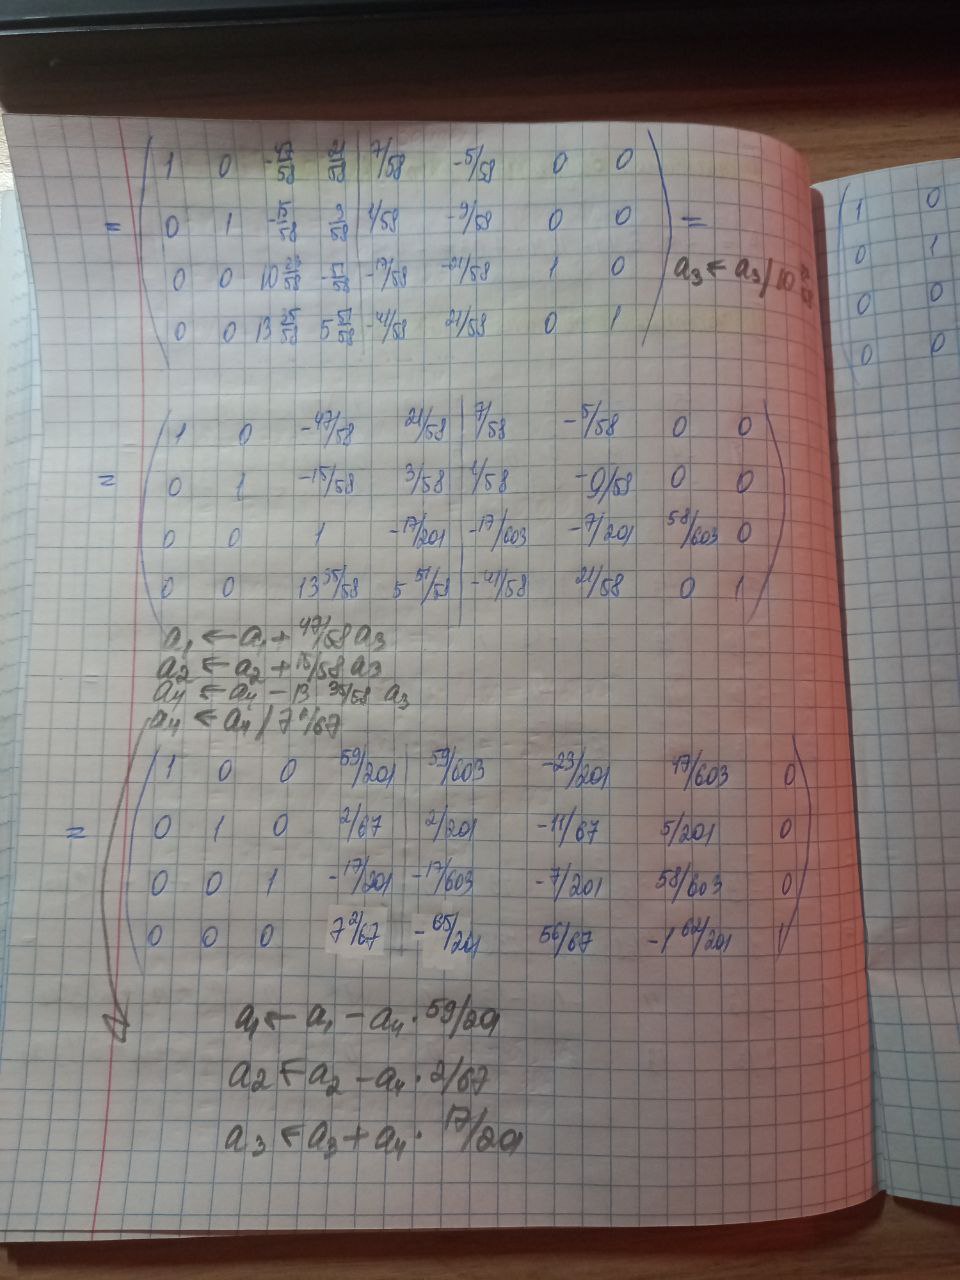 1 0 -47/58 21/58 | 7/58 -5/58 0 0
= 0 1 -15/58 3/58 | 1/58 -9/58 0 0 =
0 0 10 23/58 -51/58 | -17/58 -21/58 1 0 a₃ ← a₃ / 10
0 0 13 35/58 5 51/58 | -41/58 21/58 0 1
1 0 -47/58 21/58 | 7/58 -5/58 0 0
= 0 1 -15/58 3/58 | 1/58 -9/58 0 0
0 0 1 -17/201 | -17/603 -7/201 58/603 0
0 0 13 35/58 5 51/58 | -41/58 21/58 0 1
a₁ ← a₁ + 47/58 a₃
a₂ ← a₂ + 15/58 a₃
a₄ ← a₄ - 13 35/58 a₃
a₄ ← a₄ / 7 2/67
1 0 0 59/201 | 59/603 -23/201 47/603 0
= 0 1 0 2/67 | 2/201 -11/67 5/201 0
0 0 1 -17/201 | -17/603 -7/201 58/603 0
0 0 0 7 2/67 | -65/201 56/67 -1 62/201 1
a₁ ← a₁ - a₄ · 59/201
a₂ ← a₂ - a₄ · 2/67
a₃ ← a₃ + a₄ · 17/201
1 0
0 1
0 0
0 0